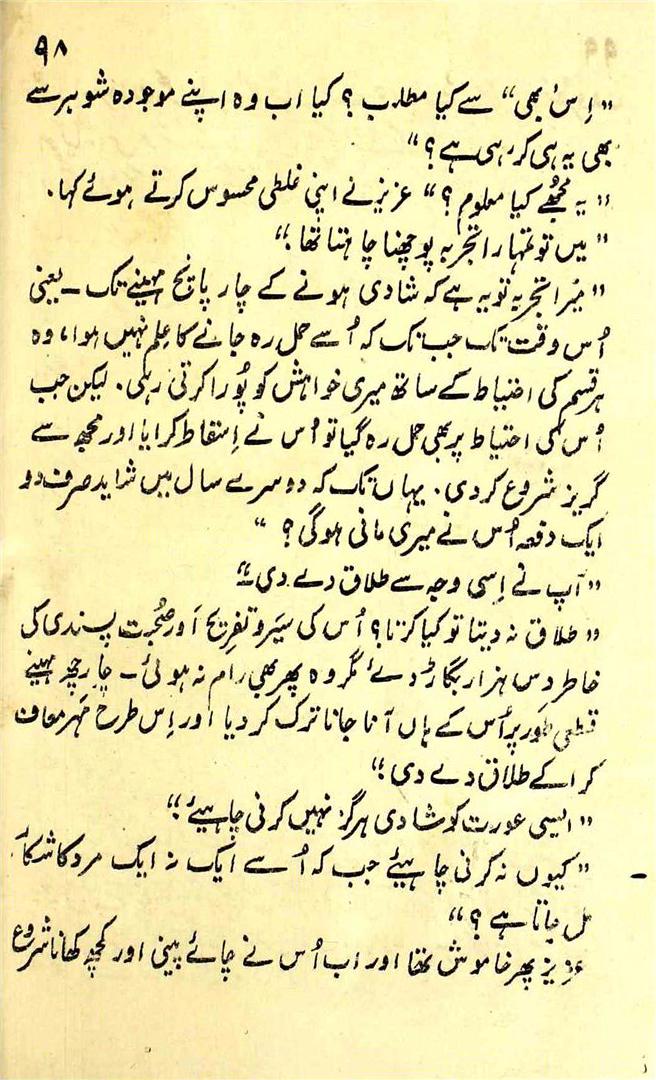 ۹۸
"اِس بھی" سے کیا مطلب؟ کیا اب وہ اپنے موجودہ شوہر سے
بھی یہ ہی کر رہی ہے؟"
"یہ مجھے کیا معلوم؟" عزیز نے اپنی غلطی محسوس کرتے ہوئے کہا۔
"میں تو تمہارا تجربہ پوچھنا چاہتا تھا۔"
"میرا تجربہ تو یہ ہے کہ شادی ہونے کے چار پانچ مہینے تک ـ یعنی
اُس وقت تک جب تک کہ اُسے حمل رہ جانے کا عِلم نہیں ہوا، وہ
ہر قسم کی احتیاط کے ساتھ میری خواہش کو پُورا کرتی رہی۔ لیکن جب
اُس کی احتیاط پر بھی حمل رہ گیا تو اُس نے اِسقاط کرایا اور مجھ سے
گریز شروع کر دی۔ یہاں تک کہ دوسرے سال میں شاید صرف دو
ایک دفعہ اُس نے میری مانی ہوگی؟"
"آپ نے اِسی وجہ سے طلاق دے دی"
"طلاق نہ دیتا تو کیا کرتا؟ اُس کی سیَر و تفریح اَور صُحبت پسندی کی
خاطر دس ہزار بگاڑ دئے مگر وہ پھر بھی رام نہ ہوئی ـ چار چھ مہینے
قطعی طَور پر اُس کے ہاں آنا جانا ترک کر دیا اور اِس طرح مَہر معاف
کرا کے طلاق دے دی۔"
"ایسی عورت کو شادی ہرگز نہیں کرنی چاہیئے۔"
"کیوں نہ کرنی چاہیئے جب کہ اُسے ایک نہ ایک مرد کا شکار
مل جاتا ہے؟"
عزیز پھر خاموش تھا اور اب اُس نے چائے پینی اور کچھ کھانا شروع